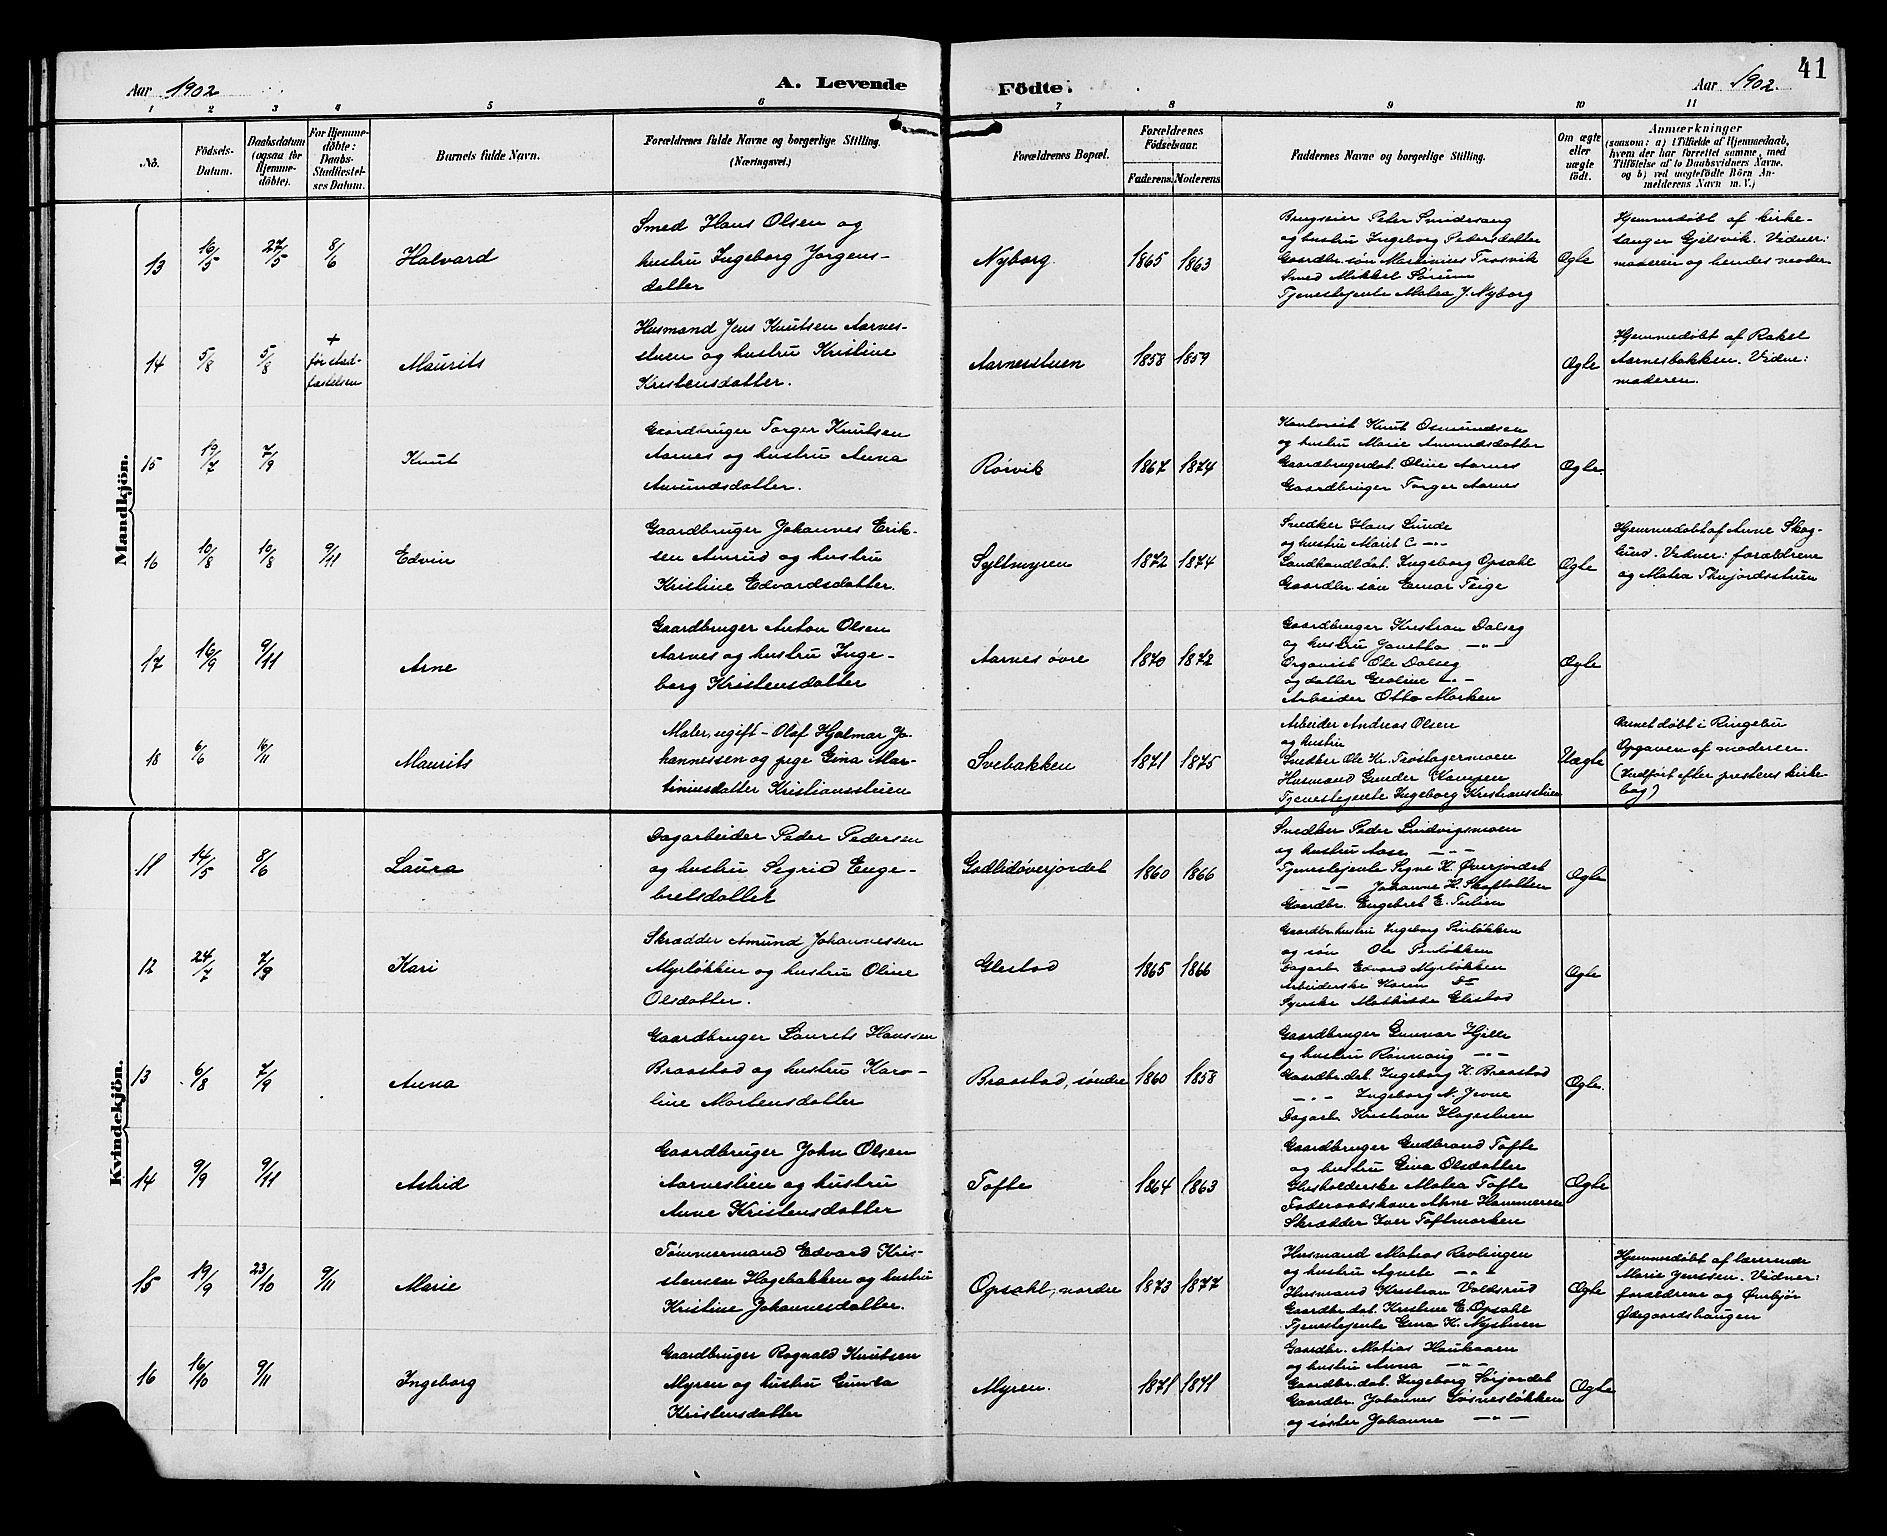 41
Aar 1902
A. Levende
Födte.
Aar 1902.
1 2 3 4 5 6 7 8 9 10 11
No.
Födsels-
Datum.
Daabsdatum
(ogsaa for
Hjemme-
döbte).
For Hjemme-
döbte:
Daabs-
Stadfæstel-
ses Datum.
Barnets fulde Navn.
Forældrenes fulde Navne og borgerlige Stilling.
(Næringsvei.)
Forældrenes Bopæl.
Forældrenes
Födselsaar.
Faderens. Moderens
Faddernes Navne og borgerlige Stilling.
Om ægte
eller
uægte
födt.
Anmærkninger
(saasom: a) i Tilfælde af Hjemmedaab,
hvem der har forrettet samme, med
Tilföielse af to Daabsvidners Navne,
og b) ved uægtefödte Börn An-
melderens Navn m. V.)
Mandkjön.
13
16/5
27/5
8/6
Halvard
Smed Hans Olsen og
hustru Ingeborg Jørgens-
datter
Nyborg
1865 1863
Brugseier Peter Smidesang
og hustru Ingeborg Pedersdatter
Gaardbr. søn Martinius Trosvik
Smed Mikkel Sørum
Tjenestejente Matea J. Nyborg
Ægte
Hjemmedøbt af kirke-
sanger Gjelsvik. Vidner:
moderen og hendes moder
14
5/8
5/8
+
før stad-
fæstelsen
Maurits
Husmand Jens Knutsen Aarnes-
stuen og hustru Kristine
Kristensdatter.
Aarnesstuen
1858 1859
Ægte
Hjemmedøbt af Rakel
Aarnesbakken. Vidne:
moderen.
15
19/7
7/9
Knut
Gaardbruger Torger Knutsen
Aarnes og hustru Anna
Amundsdatter.
Rørvik
1867 1874
Knut Osmundsen
og hustru Marie Amundsdatter
Gaardbrugerdat. Oline Aarnes
Gaardbruger Torger Aarnes
Ægte.
16
10/8
10/8
9/11
Edvin
Gaardbruger Johannes Erik-
sen Amrud og hustru
Kristine Edvardsdatter.
Syltmyren
1872 1874
Snedker Hans Lunde
og hustru Marit C -"-
Landhandl. dat. Ingeborg Opsahl
Gaardbr. søn Einar Teige
Ægte
Hjemmedøbt af Anne Skog-
lund. Vidner: forældrene
og Matea Thujordsstuen
17
16/9
9/11
Arne
Gaardbruger Anton Olsen
Aarnes og hustru Inge-
borg Kristensdatter
Aarnes øvre
1870 1872
Gaardbruger Kristian Dalseg
og hustru Janetta -"-
Organist Ole Dalseg
og datter Gioline -"-
Arbeider Otto Morken
Ægte
18
6/6
16/11
Maurits
Maler, ugift - Olaf Hjalmar Jo-
hannessen og pige Gina Mar-
tiniusdatter Kristiansstuen
Svebakken
1871 1875
Arbeider Andreas Olsen
og hustru
Snedker Ole Kr. Trøstagermoen
Husmand Gunder Kampen
Tjenestejente Ingeborg Kristiansstuen
Uægte
Barnet døbt i Ringebu
Opgaven af moderen.
(Indført efter prestens kirke-
bog)
Kvindekjön.
11
14/5
8/6
Laura
Dagarbeider Peder Pedersen
og hustru Sigrid Enge-
bretsdatter
Godlidøverjordet
1860 1866
Snedker Peder Lindvigsmoen
og hustru Aase -"-
Tjenestejente Signe K. Øverjordet
-"- Johanne H. Skoftotten
Gaardbr. Engebret E. Tulien
Ægte
12
24/7
7/9
Kari
Skrædder Amund Johannessen
Myrløkken og hustru Oline
Olsdatter.
Glestad
1865 1866
Gaardbr. hustru Ingeborg Pinløkken
og søn Ole Pinløkken
Dagarb. Edvard Myrløkken
Arbeiderske Karen Do
Syerske Mathilde Glestad
Ægte
13
6/8
7/9
Anna
Gaardbruger Laurits Hanssen
Braastad og hustru Karo-
line Mortensdatter
Braastad, søndre
1860 1858
Gaardbruger Gunnar Hjelle
og hustru Rønnaug -"-
Gaardbr. dat. Ingeborg K. Braastad
-"- Ingeborg N. Jevne
Dagarb. Kristian Hagestuen
Ægte.
14
9/9
9/11
Astrid
Gaardbruger John Olsen
Aarneslien og hustru
Anne Kristensdatter
Tofte
1864 1863
Gaardbruger Gudbrand Tofte
og hustru Gina Olsdatter
Husholderske Matea Tofte
Føderaadskone Anne Hammeren
Skrædder Iver Toftmorken
Ægte
15
19/9
23/10
9/11
Marie
Tømmermand Edvard Kris-
stensen Hagebakken og hustru
Kristine Johannesdatter.
Opsahl, nordre
1873 1877
Husmand Matias Revlingen
og hustru Agnete -"-
Husmand Kristian Voldsrud
Gaardbr. dat. Kristine E. Opsahl
Tjenestejente Gina K. Nystuen
Ægte
Hjemmedøbt af lærerinde
Marie Jenssen. Vidner:
forældrene og Ømbjør
Ødegaardshaugen
16
16/10
9/11
Ingeborg
Gaardbruger Rognald Knutsen
Myren og hustru Gunda
Kristensdatter
Myren.
1871 1871
Gaardbr. Matias Haukaaen
og hustru Anna -"-
Gaardbr. dat. Ingeborg Sørjordet
Gaardbr. Johannes Gøsnesløkken
og søster Johanne -"-
Ægte